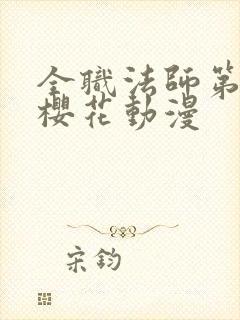 全職法師第
櫻花動漫
宋鈞